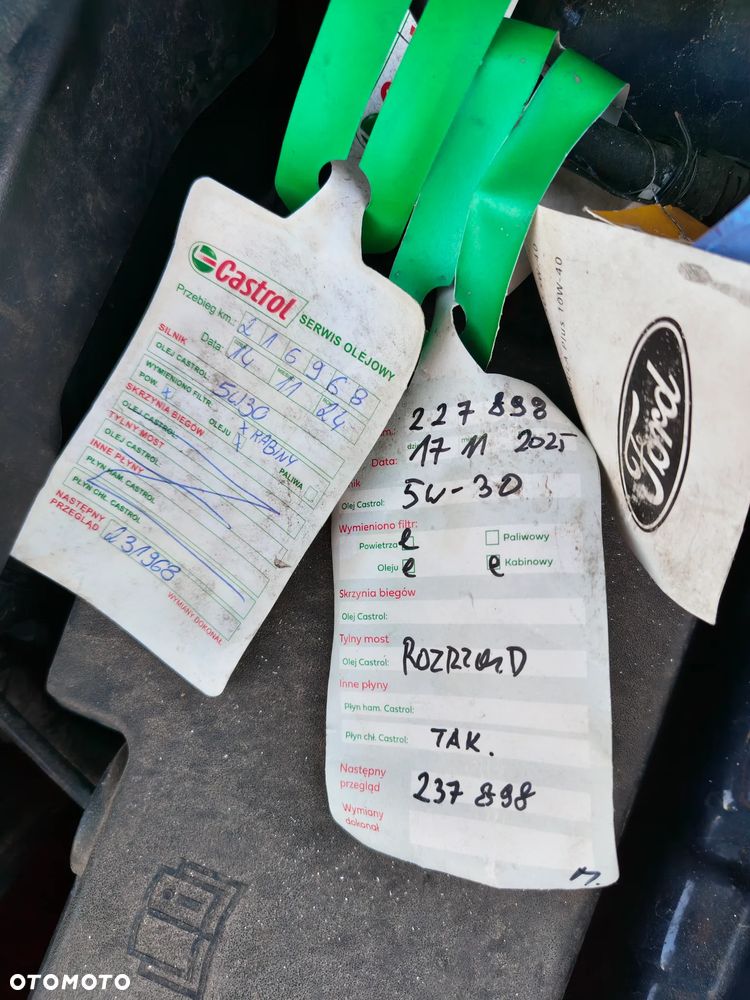 Castrol
SERWIS OLEJOWY
Przebieg km.: 216968
Data: 14 11 24
SILNIK
OLEJ CASTROL: 5W30
WYMIENIONO FILTR
POW. x OLEJU x KABINY x PALIWA
SKRZYNIA BIEGÓW
OLEJ CASTROL:
TYLNY MOST
OLEJ CASTROL:
INNE PŁYNY
PŁYN HAM. CASTROL
PŁYN CHŁ. CASTROL
NASTĘPNY
PRZEGLĄD 231968
WYMIANY DOKONAŁ
m.: 227 898
Data: 17 11 2025
nik
Olej Castrol: 5W-30
Wymieniono filtr:
Powietrza Paliwowy
Oleju Kabinowy
Skrzynia biegów
Olej Castrol:
Tylny most
Olej Castrol: ROZRZĄD
Inne płyny
Płyn ham. Castrol:
Płyn chł. Castrol: TAK.
Następny
przegląd 237 898
Wymiany
dokonał
M.
10W-40
Ford
OTOMOTO